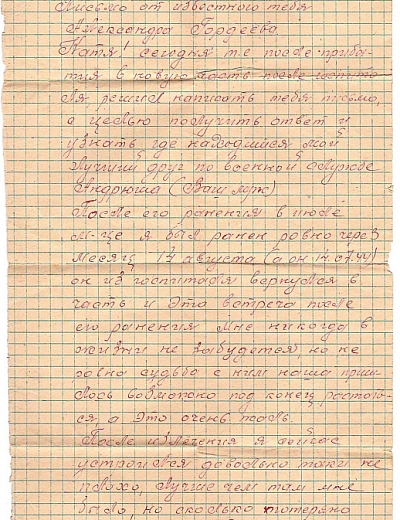 Письмо от известного тебя
Александра Гордеева.
Катя! сегодня т.е после прибы-
тия в новую часть после госпита
ля решил написать тебя письмо,
с целью получить ответ и
узнать где находишйся мой
Лучший друг по военной службе
Андрюша (Ваш
После его ранения в июле
м-це я был ранен ровно через
месяц 14 августа (а он 14.07.44)
он из госпиталя вернулся в
часть и эта встреча после
его ранения мне никогда в
жизни не забудется, но не
ровно судьба с ним наша приш
лось возможно под конец растать-
ся, а это очень жаль.
После излечения я сейчас
устроился довольно таки не
плохо, лучше чем там мне
было, но сколько потеряно